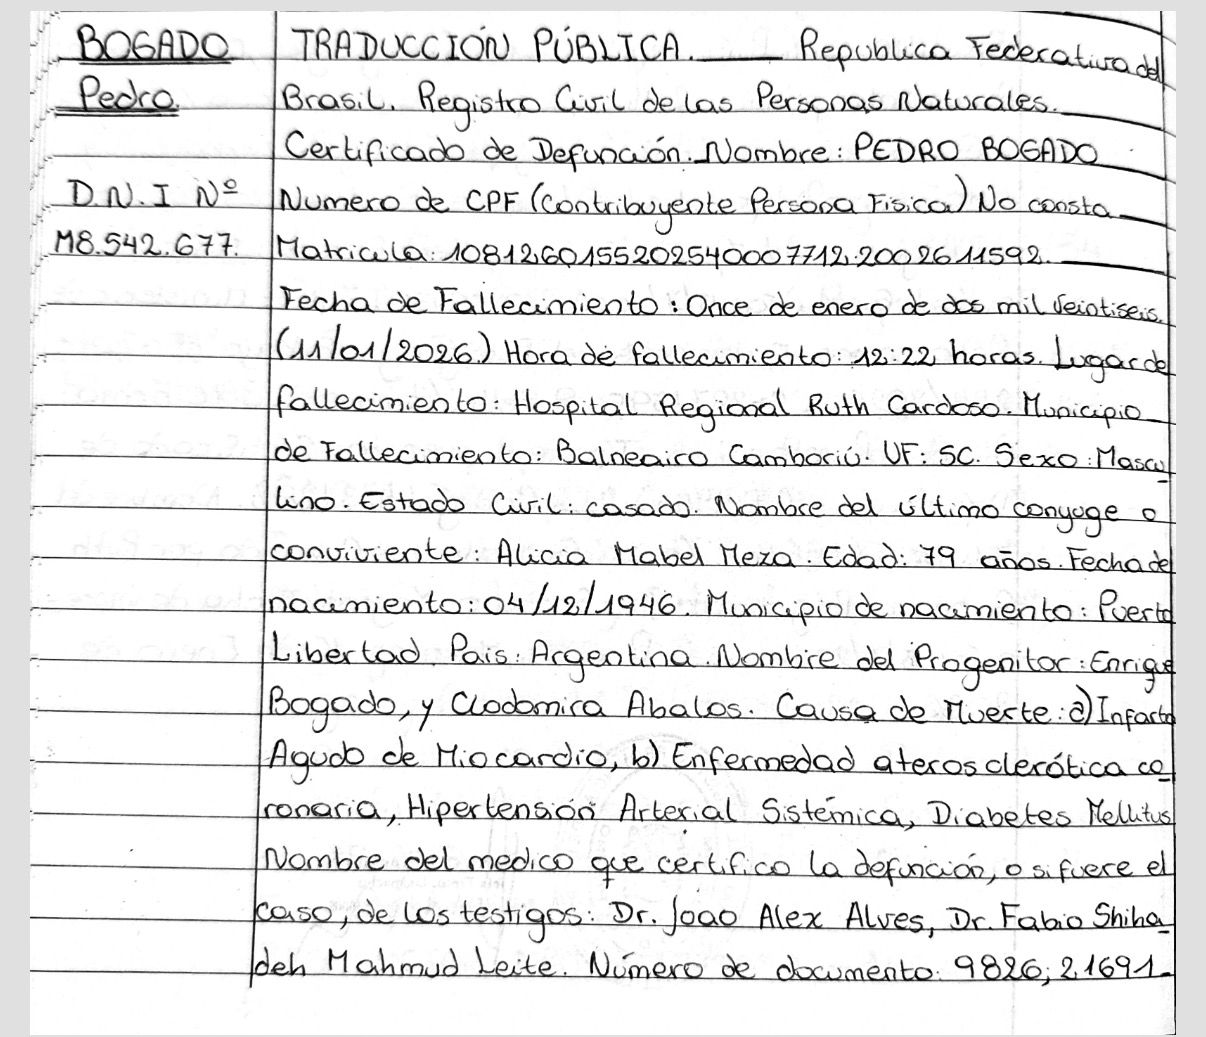 BOGADO
Pedro.
D.N.I Nº
M8.542.677.
TRADUCCIÓN PÚBLICA. Republica Federativa del
Brasil. Registro Civil de las Personas Naturales.
Certificado de Defunción. Nombre: PEDRO BOGADO
Numero de CPF (Contribuyente Persona Fisica) No consta
Matricula: 1081260155202540007712.2002611592.
Fecha de Fallecimiento: Once de enero de dos mil veintiseis.
(11/01/2026.) Hora de fallecimiento: 12:22 horas. Lugar de
fallecimiento: Hospital Regional Ruth Cardoso. Municipio
de Fallecimiento: Balneairo Camboriú. UF: SC. Sexo: Mascu_
lino. Estado Civil: casado. Nombre del último conyuge o
conviviente: Alicia Mabel Meza. Edad: 79 años. Fecha de
nacimiento: 04/12/1946. Municipio de nacimiento: Puerto
Libertad. Pais: Argentina. Nombre del Progenitor: Enrique
Bogado, y Clodomira Abalos. Causa de Muerte: a) Infarto
Agudo de Miocardio, b) Enfermedad aterosclerótica co_
ronaria, Hipertensión Arterial Sistémica, Diabetes Mellitus
Nombre del medico que certifico la defunción, o si fuere el
caso, de los testigos: Dr. Joao Alex Alves, Dr. Fabio Shiha_
deh Mahmud Leite. Número de documento: 9826; 21691